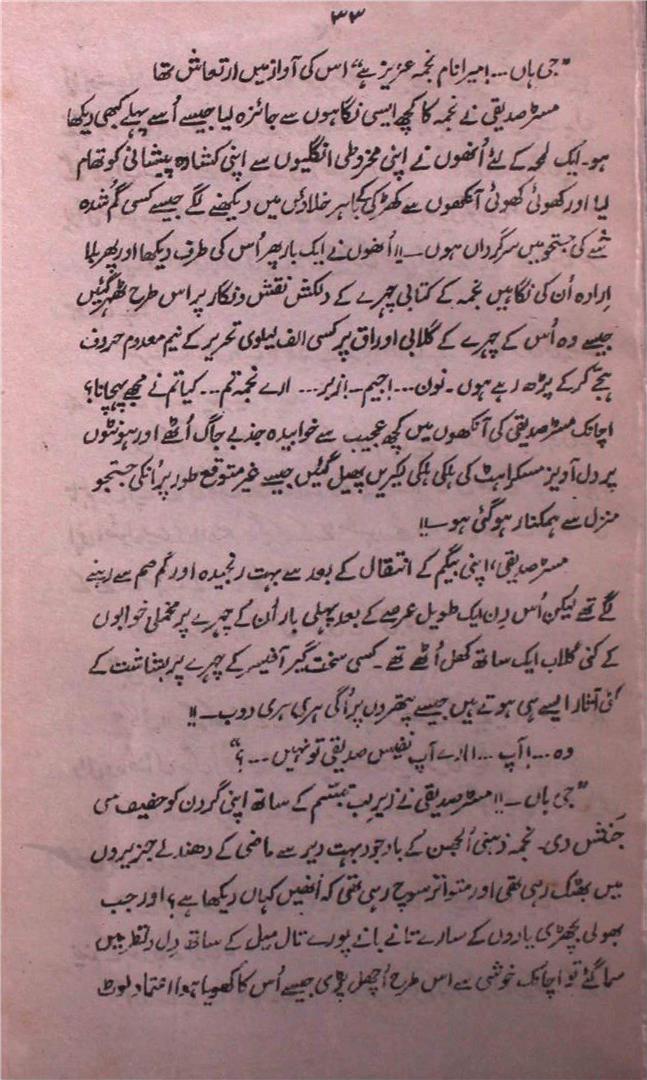 ۳۳
”جی ہاں ... !میرا نام نجمہ عزیز ہے“ اس کی آواز میں ارتعاش تھا
مسٹر صدیقی نے نجمہ کا کچھ ایسی نگاہوں سے جائزہ لیا جیسے اُسے پہلے کبھی دیکھا
ہو۔ ایک لمحہ کے لئے اُنھوں نے اپنی مخروطی انگلیوں سے اپنی کشادہ پیشانی کو تھام
لیا اور کھوئی کھوئی آنکھوں سے کھڑکی کے باہر خلاؤں میں دیکھنے لگے جیسے کسی گم شدہ
شے کی جستجو میں سرگرداں ہوں ۔!! اُنھوں نے ایک بار پھر اُس کی طرف دیکھا اور پھر بلا
اِرادہ اُن کی نگاہیں نجمہ کے کتابی چہرے کے دلکش نقش و نگار پر اس طرح ٹھہر گئیں
جیسے وہ اُس کے چہرے کے گلابی اوراق پر کسی الف لیلوی تحریر کے نیم معدوم حروف
ہجّے کرکے پڑھ رہے ہوں ۔ نون ... !جیم ۔ !زبر ... ارے نجمہ تم ... کیا تم نے مجھے پہچانا؟
اچانک مسٹر صدیقی کی آنکھوں میں کچھ عجیب سے خوابیدہ جذبے جاگ اُٹھے اور ہونٹوں
پر دل آویز مسکراہٹ کی ہلکی ہلکی لکیریں پھیل گئیں جیسے غیر متوقع طور پر اُنکی جستجو
منزل سے ہمکنار ہو گئی ہو ۔!!
مسٹر صدیقی، اپنی بیگم کے انتقال کے بعد سے بہت رنجیدہ اور گم صم سے رہنے
لگے تھے لیکن اُس دِن ایک طویل عرصے کے بعد پہلی بار اُن کے چہرے پر مخملی خوابوں
کے کئی گلاب ایک ساتھ کھل اُٹھے تھے ۔ کسی سخت گیر آفیسر کے چہرے پر بشاشت کے
کئی آثار ایسے ہی ہوتے ہیں جیسے پتھروں پر اُگی ہری ہری دوب ۔!!
وہ ... !آپ ... !ارے آپ نفیس صدیقی تو نہیں ... ؟“
”جی ہاں ۔!! مسٹر صدیقی نے زیرِ لب تبسّم کے ساتھ اپنی گردن کو خفیف سی
جنبش دی۔ نجمہ ذہنی اُلجھن کے باوجود بہت دیر سے ماضی کے دھندلے جزیروں
میں بھٹک رہی تھی اور متواتر سوچ رہی تھی کہ اُنھیں کہاں دیکھا ہے؟ اور جب
بھولی بچھڑی یادوں کے سارے تانے بانے پورے تال میل کے ساتھ دِل و نظر میں
سما گئے تو اچانک خوشی سے اس طرح اُچھل پڑی جیسے اُس کا کھویا ہوا اعتماد لوٹ